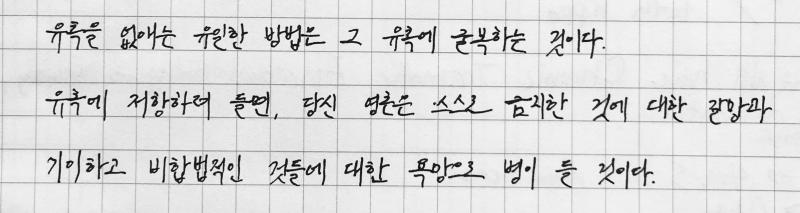 유혹을 없애는 유일한 방법은 그 유혹에 굴복하는 것이다.
유혹에 저항하려 들면, 당신 영혼은 스스로 금지한 것에 대한 갈망과
기이하고 비합법적인 것들에 대한 욕망으로 병이 들 것이다.